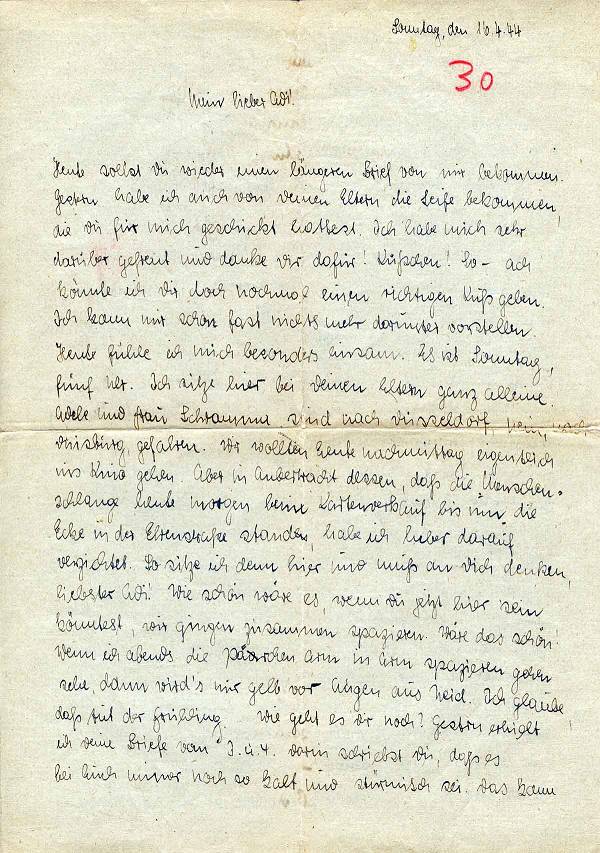 Sonntag, den 16.4.44
30
Mein lieber Adi!
Heute sollst Du wieder einen längeren Brief von mir bekommen.
Gestern habe ich auch von Deinen Eltern die Seife bekommen,
die Du für mich geschickt hattest. Ich habe mich sehr
darüber gefreut und danke Dir dafür! Küßchen! So – ach
könnte ich Dir doch nochmal einen richtigen Kuß geben.
Ich kann mir schon fast nichts mehr darunter vorstellen.
Heute fühle ich mich besonders einsam. Es ist Sonntag,
fünf Uhr. Ich sitze hier bei Deinen Eltern ganz alleine.
Adele und Frau Schramm sind nach Düsseldorf, nein, nach
Duisburg, gefahren. Wir wollten heute nachmittag eigentlich
ins Kino gehen. Aber in Anbetracht dessen, daß die Menschen-
schlange heute morgen beim Kartenverkauf bis um die
Ecke in der Ehrenstraße standen, habe ich lieber darauf
verzichtet. So sitze ich denn hier und muß an Dich denken,
liebster Adi! Wie schön wäre es, wenn Du jetzt hier sein
könntest, wir gingen zusammen spazieren. Wäre das schön!
Wenn ich abends die Pärchen Arm in Arm spazieren gehen
sehe, dann wird's mir gelb vor Augen aus Neid. Ich glaube,
daß tut der Frühling. Wie geht es Dir noch? Gestern erhielt
ich Deine Briefe vom 3. u. 4. Darin schriebst Du, daß es
bei Euch immer noch so kalt und stürmisch sei. Das kann